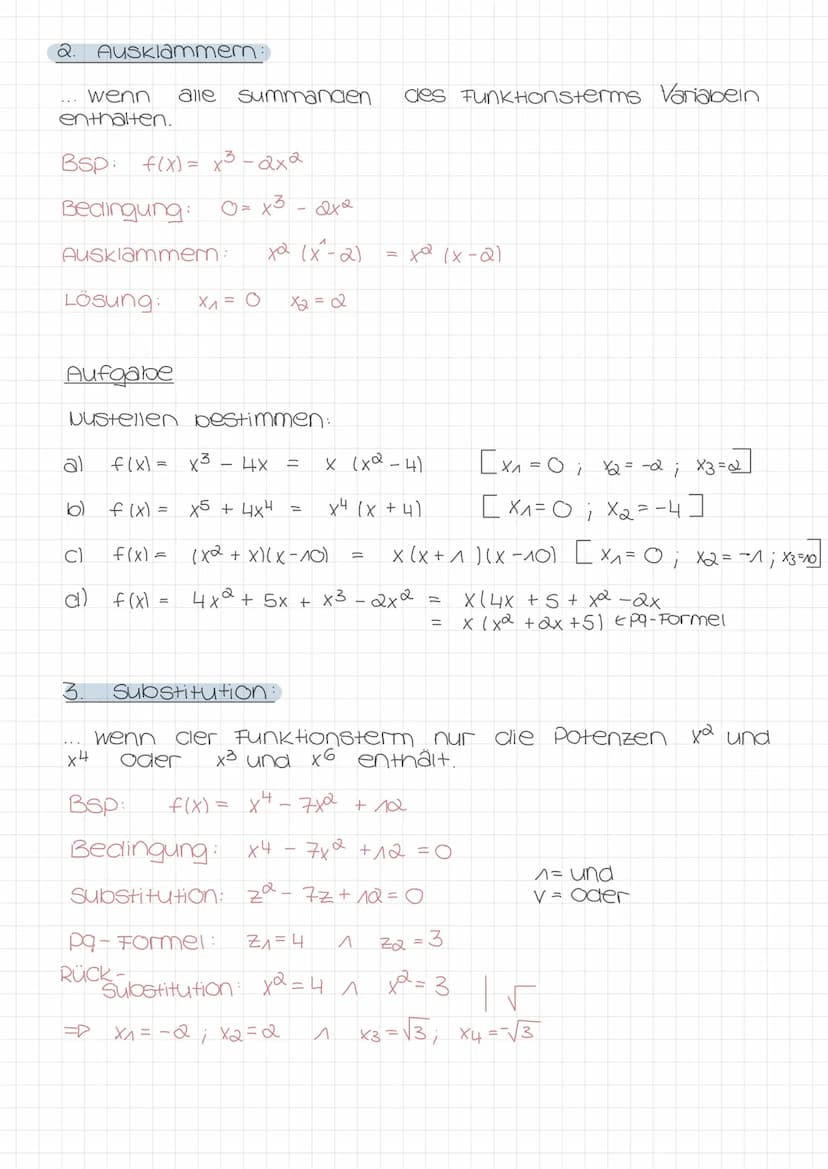 2. Ausklammern:
... wenn alle summanden des Funktionsterms Variabeln
enthalten.
Bsp: f(x) = x³ - 2x²
Bedingung: 0 = x³ - 2x²
Ausklammern: x² (x¹ - 2) = x² (x - 2)
Lösung: x₁ = 0 x₂ = 2
Aufgabe
Nustellen bestimmen:
a) f(x) = x³ - 4x = x (x² - 4) [x₁ = 0 ; x₂ = -2 ; x₃ = 2]
b) f(x) = x⁵ + 4x⁴ = x⁴ (x + 4) [x₁ = 0 ; x₂ = -4]
c) f(x) = (x² + x)(x - 10) = x (x + 1)(x - 10) [x₁ = 0 ; x₂ = -1 ; x₃ = 10]
d) f(x) = 4x² + 5x + x³ - 2x² = x(4x + 5 + x² - 2x
= x (x² + 2x + 5) ← pq-Formel
3. Substitution:
... wenn der Funktionsterm nur die Potenzen x² und
x⁴ oder x³ und x⁶ enthält.
Bsp: f(x) = x⁴ - 7x² + 12
Bedingung: x⁴ - 7x² + 12 = 0
∧ = und
Substitution: z² - 7z + 12 = 0
∨ = oder
pq-Formel: z₁ = 4 ∧ z₂ = 3
Rück-
Substitution: x² = 4 ∧ x² = 3 | √
⇒ x₁ = -2 ; x₂ = 2 ∧ x₃ = √3 ; x₄ = -√3